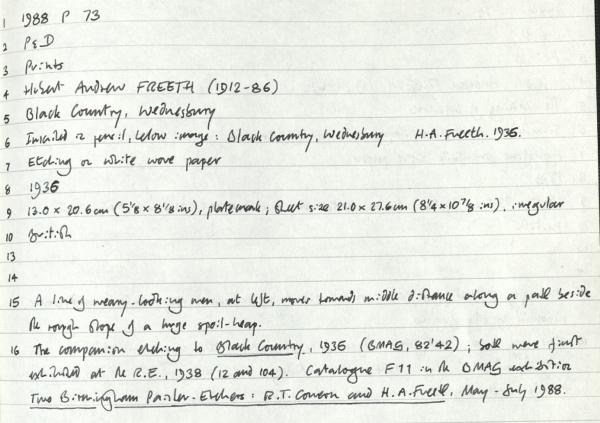 1 1988 P 73
2 P&D
3 Prints
4 Hubert Andrew FREETH (1912-86)
5 Black Country, Wednesbury
6 Inscribed in pencil, below image: Black Country, Wednesbury H.A. Freeth. 1936.
7 Etching on white wove paper
8 1936
9 13.0 x 20.6 cm (5 1/8 x 8 1/8 ins), platemark; sheet size 21.0 x 27.6 cm (8 1/4 x 10 7/8 ins). irregular
10 British
13
14
15 A line of weary-looking men, at left, moves towards middle distance along a path beside
the rough slope of a huge spoil-heap.
16 The companion etching to Black Country, 1936 (BMAG, 82'42); both were first
exhibited at the R.E., 1938 (12 and 104). Catalogue F11 in the BMAG exhibition
Two Birmingham Painter-Etchers: R.T. Cowern and H.A. Freeth, May-July 1988.